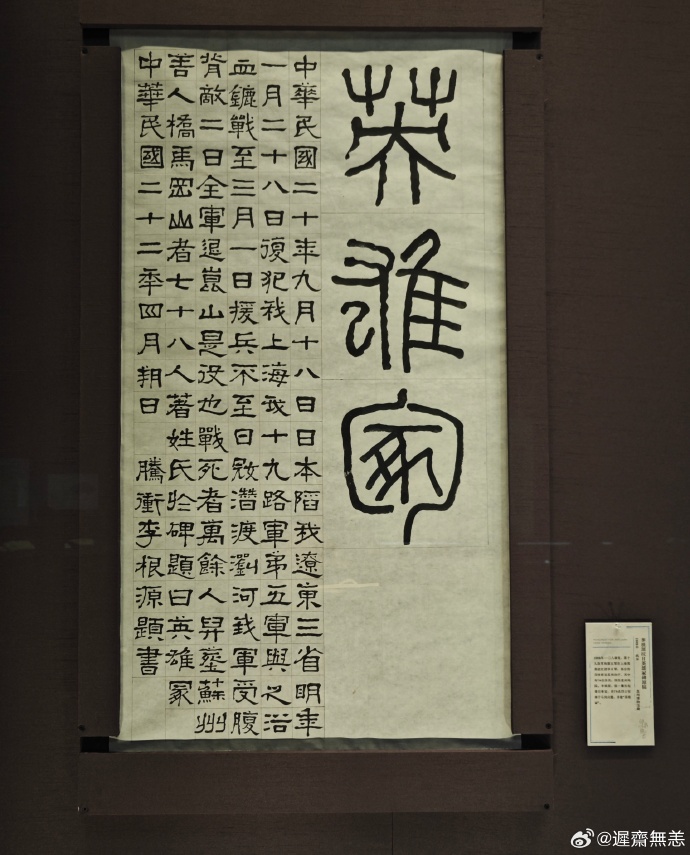 英雄冢
中華民國二十年九月十八日日本陷我遼東三省明年
一月二十八日復犯我上海我十九路軍弟五軍與之浴
血鏖戰至三月一日援兵不至日寇潛渡瀏河我軍受腹
背敵二日全軍退崑山是役也戰死者萬餘人舁薶蘇州
善人橋馬岡山者七十八人著姓氏於碑題曰英雄冢
中華民國二十二年四月朔日 騰衝李根源題書
@遲齋無恙